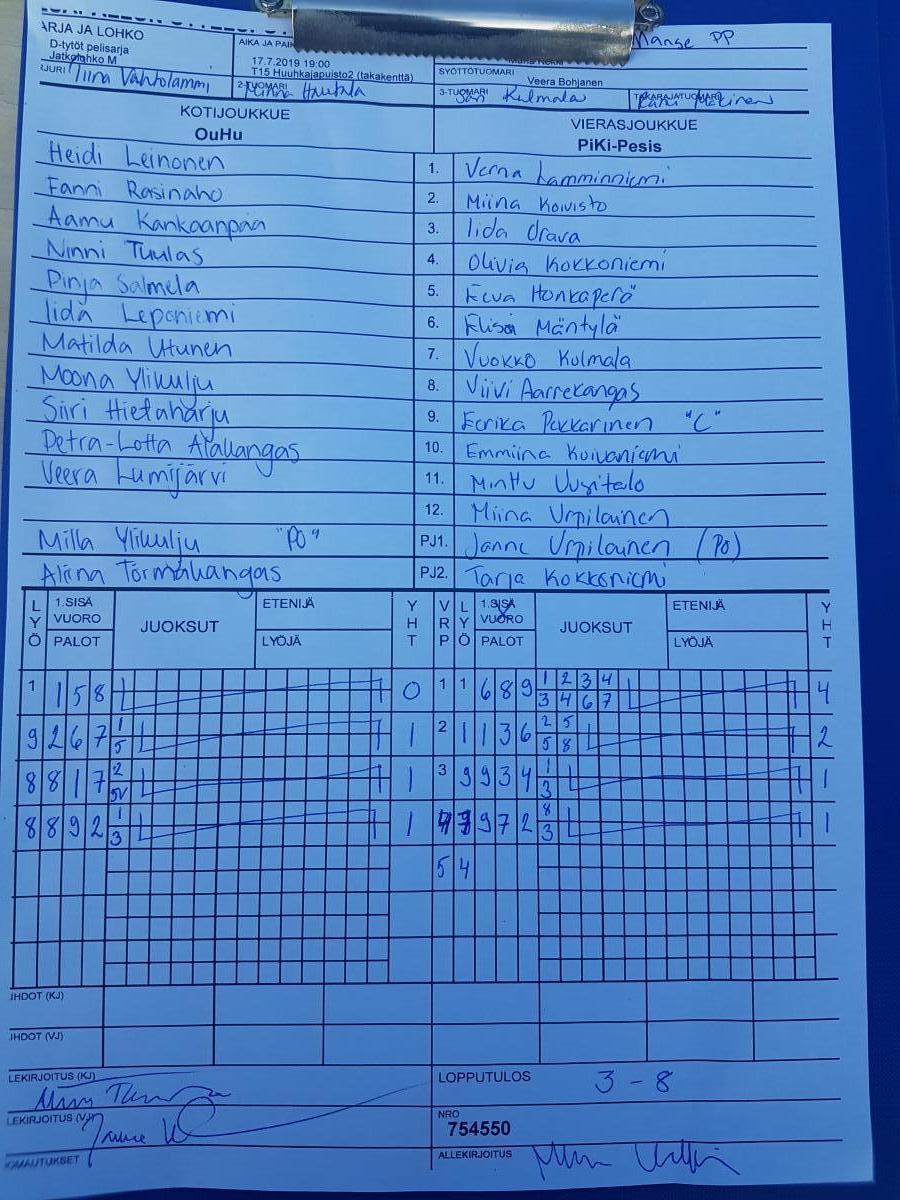 ARJA JA LOHKO
D-tytöt pelisarja
Jatkolohko M
AIKA JA PAI
17.7.2019 19:00
T15 Huuhkajapuisto2 (takakenttä)
Manse PP
SYÖTTÖTUOMARI
Veera Bohjanen
Tiina Vahtolammi
2-TUOMARI
3-TUOMARI Kulmala
TAKARAJATUOMARI
KOTIJOUKKUE
OuHu
VIERASJOUKKUE
PiKi-Pesis
Heidi Leinonen 1. Verna Lamminniemi
Fanni Rasinaho 2. Miina Koivisto
Aamu Kankaanpää 3. Iida Orava
Ninni Tuulas 4. Olivia Kokkoniemi
Pinja Salmela 5. Eeva Honkaperä
Iida Leponiemi 6. Elisa Mäntylä
Matilda Utunen 7. Vuokko Kulmala
Moona Ylikulju 8. Viivi Aarrekangas
Siiri Hietaharju 9. Eerika Pekkarinen "C"
Petra-Lotta Alakangas 10. Emmiina Koivuniemi
Veera Lumijärvi 11. Minttu Uusitalo
12. Miina Urpilainen
Milla Ylikulju "PO" PJ1. Janne Urpilainen (PO)
Aliina Törmäkangas PJ2. Tarja Kokkoniemi
LYÖ 1.SISÄ VUORO PALOT JUOKSUT ETENIJÄ LYÖJÄ YHT VRP LYÖ 1.SISÄ VUORO PALOT JUOKSUT ETENIJÄ LYÖJÄ YHT
1 1 5 8 0 1 1 6 8 9 1 2 3 4 4
3 4 6 7
9 2 6 7 1 1 2 1 1 3 6 2 5 2
5 5 8
8 8 1 7 2 1 3 9 9 3 4 1 1
5V 3
8 8 9 2 1 1 9 7 2 8 1
3 3
5 4
JHDOT (KJ)
JHDOT (VJ)
LEKIRJOITUS (KJ)
LOPPUTULOS 3 - 8
LEKIRJOITUS (VJ)
NRO
754550
OMAUTUKSET
ALLEKIRJOITUS